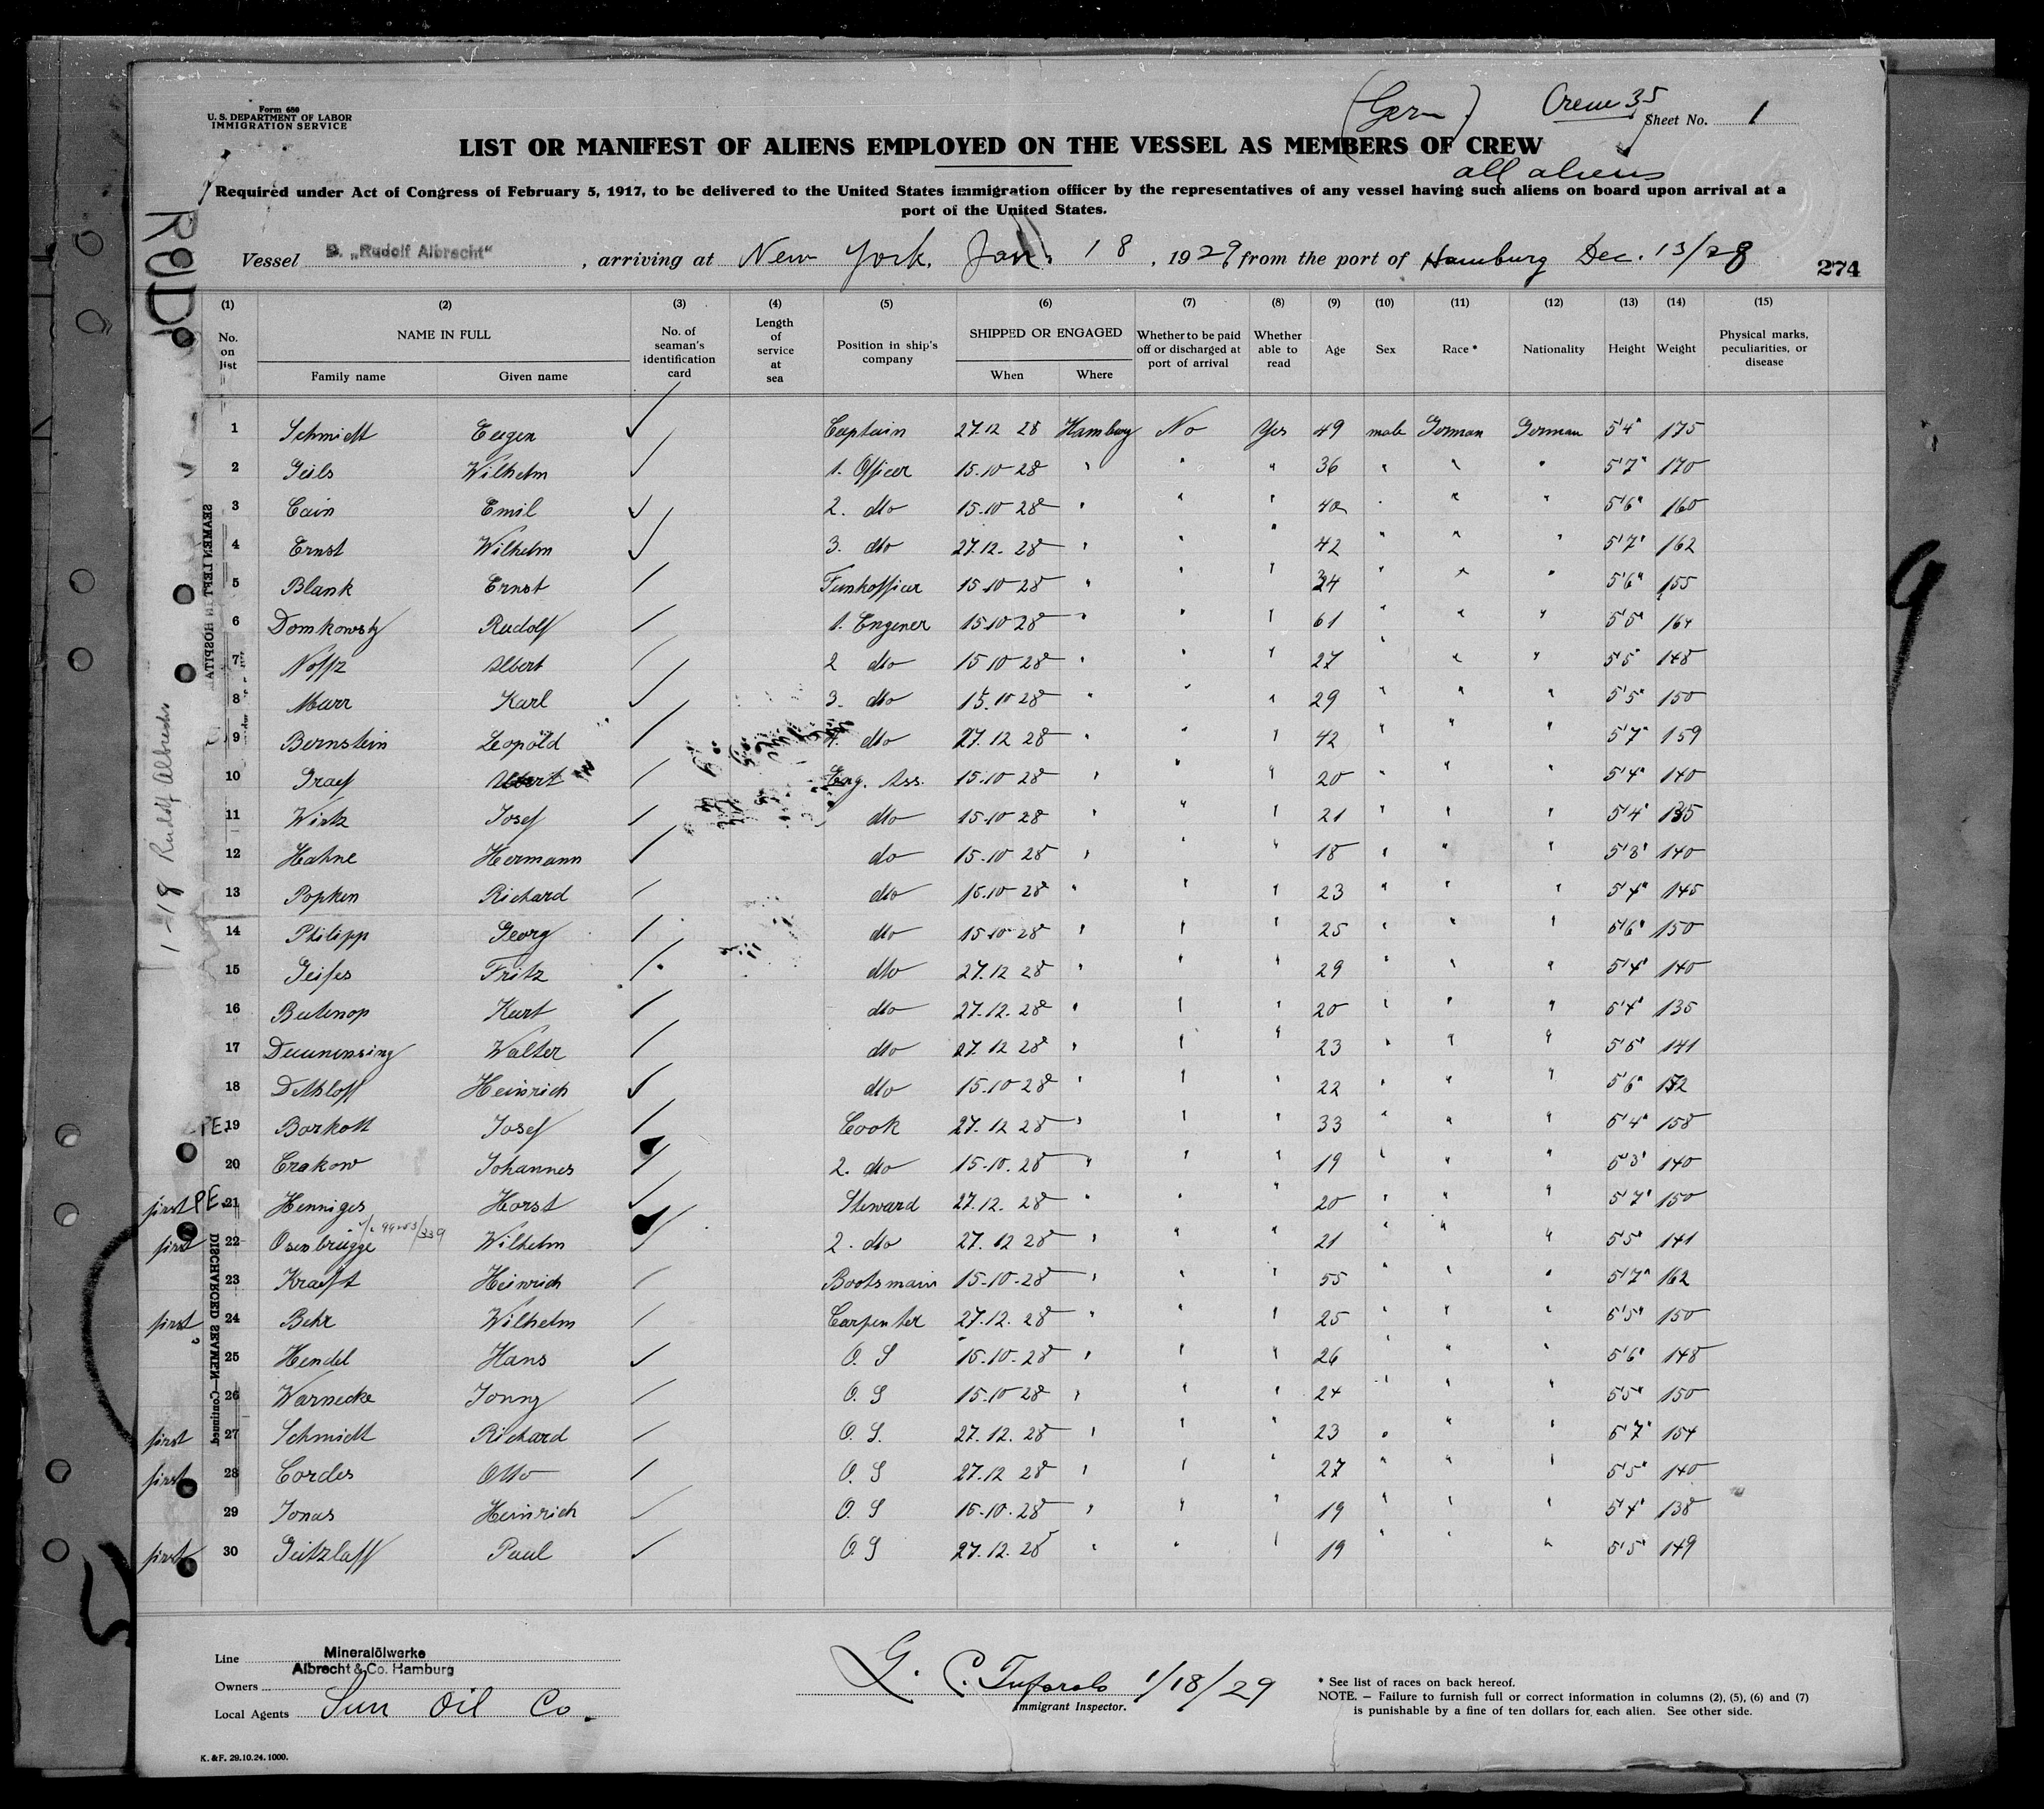 Form 680
U. S. DEPARTMENT OF LABOR
IMMIGRATION SERVICE
(Germ) Crew 35
Sheet No. 1
LIST OR MANIFEST OF ALIENS EMPLOYED ON THE VESSEL AS MEMBERS OF CREW
all aliens
Required under Act of Congress of February 5, 1917, to be delivered to the United States immigration officer by the representatives of any vessel having such aliens on board upon arrival at a
port of the United States.
Vessel D. „Rudolf Albrecht“, arriving at New York, Jan. 18, 1929 from the port of Hamburg Dec. 13/28
274
(1) (2) (3) (4) (5) (6) (7) (8) (9) (10) (11) (12) (13) (14) (15)
No. on list NAME IN FULL Family name Given name No. of seaman's identification card Length of service at sea Position in ship's company SHIPPED OR ENGAGED When Where Whether to be paid off or discharged at port of arrival Whether able to read Age Sex Race * Nationality Height Weight Physical marks, peculiarities, or disease
1 Schmidt Eugen Captain 27.12 28 Hamburg No Yes 49 male German German 5'4" 175
2 Geils Wilhelm 1. Officer 15.10 28 " " " 36 " " " 5'7" 170
3 Cain Emil 2. dto 15.10 28 " " " 40 " " " 5'6" 160
4 Ernst Wilhelm 3. dto 27.12. 28 " " " 42 " " " 5'7" 162
5 Blank Ernst Funkofficer 15.10 28 " " " 34 " " " 5'6" 155
6 Domkowsky Rudolf 1. Engener 15.10 28 " " " 61 " " " 5'5" 164
7 Albert 2 dto 15 10 28 " " " 27 " " " 5'5" 148
8 Marr Karl 3. dto 15.10 28 " " " 29 " " " 5'5" 150
9 Bernstein Leopold 4. dto 27.12 28 " " " 42 " " " 5'7" 159
10 Graef Albert Eng. Ass. 15.10 28 " " " 20 " " " 5'4" 140
11 Wirtz Josef dto 15.10 28 " " " 21 " " " 5'4" 135
12 Hahne Hermann do 15.10 28 " " " 18 " " " 5'3" 140
13 Popken Richard dto 15.10 28 " " " 23 " " " 5'4" 145
14 Philipp Georg dto 15.10 28 " " " 25 " " " 5'6" 150
15 Fritz dto 27.12 28 " " " 29 " " " 5'4" 140
16 Butenop Kurt dto 27.12. 28 " " " 20 " " " 5'4" 135
17 Walter dto 27.12 28 " " " 23 " " " 5'5" 141
18 Dethloff Heinrich dto 15.10 28 " " " 22 " " " 5'6" 152
PE. 19 Borkott Josef Cook 27.12 28 " " " 33 " " " 5'4" 158
20 Crakow Johannes 2. dto 15.10. 28 " " " 19 " " " 5'3" 140
first PE 21 Henniges Horst Steward 27.12. 28 " " " 20 " " " 5'7" 150
first 22 Osenbrügge Wilhelm 2. dto 27.12 28 " " " 21 " " " 5'5" 141
23 Kraeft Heinrich Bootsmain 15.10.28 " " " 55 " " " 5'7" 162
first 24 Behr Wilhelm Carpenter 27.12. 28 " " " 25 " " " 5'5" 150
25 Hendel Hans O. S 15.10.28 " " " 26 " " " 5'6" 148
26 Warnecke Jonny O. S 15.10 28 " " " 24 " " " 5'5" 150
first 27 Schmidt Richard O. S. 27.12. 28 " " " 23 " " " 5'7" 154
first 28 Cordes Otto O. S 27.12 28 " " " 27 " " " 5'5" 140
29 Jonas Heinrich O. S 15.10.28 " " " 19 " " " 5'4" 138
first 30 Geitzlaff Paul O. S 27.12.28 " " " 19 " " " 5'5" 149
SEAMEN LEFT IN HOSPITAL
DISCHARGED SEAMEN—Continued
1-18 Rudolf Albrecht
Line Mineralölwerke
Albrecht & Co. Hamburg
Owners
Local Agents Sun Oil Co.
1/18/29
Immigrant Inspector.
* See list of races on back hereof.
NOTE. — Failure to furnish full or correct information in columns (2), (5), (6) and (7)
is punishable by a fine of ten dollars for each alien. See other side.
K. & F. 29.10.24. 1000.